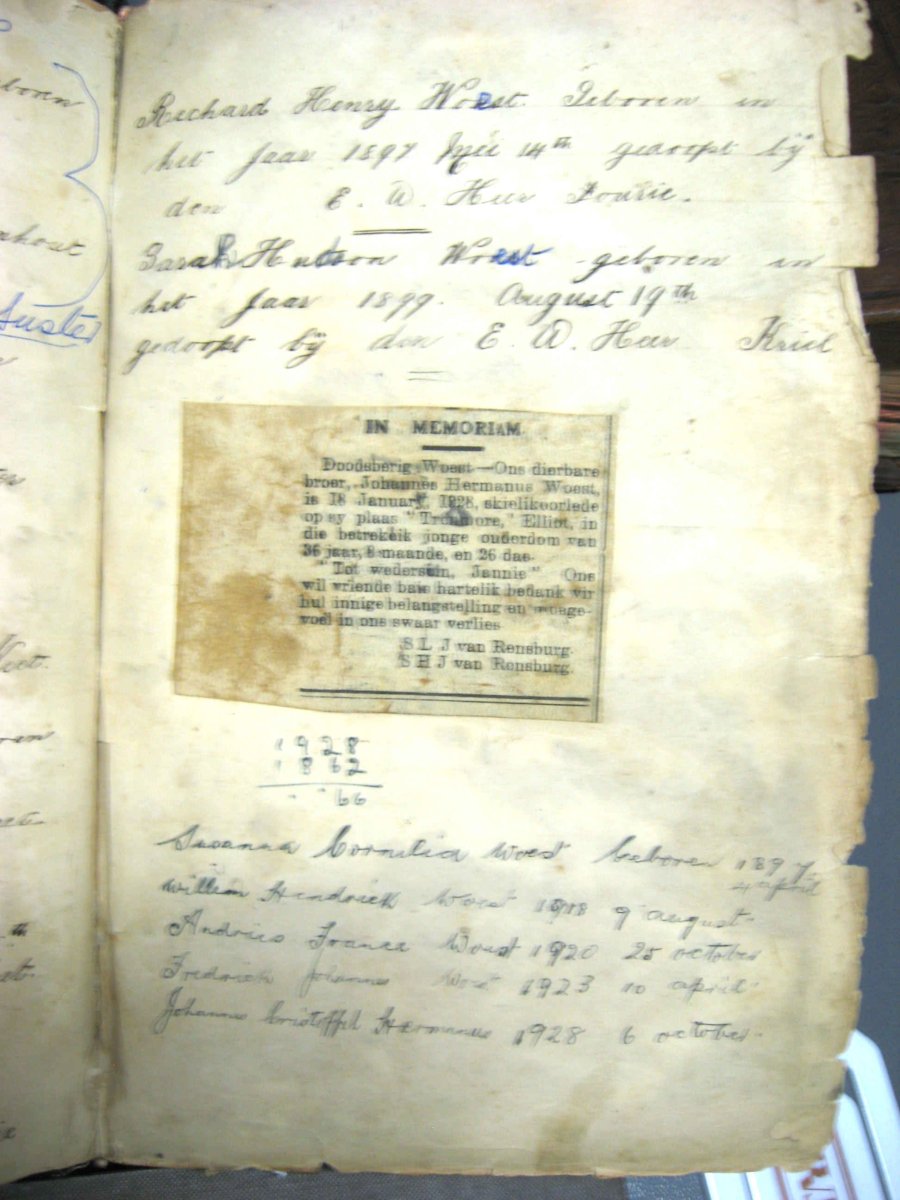 boren
Richard Henry Woest Geboren in
het Jaar 1897 14th gedoopt bij
den E. W. Heer Fourie.
Sarah Hudson Woest geboren in
het Jaar 1899. August 19th
gedoopt bij den E. W. Heer Kriel
IN MEMORIAM
Doodsberig Woest—Ons dierbare
broer, Johannes Hermanus Woest,
is 18 January, 1928, skielik oorlede
op sy plaas " Elliot, in
die betreklik jonge ouderdom van
36 jaar, 8 maande, en 26 dae.
"Tot wedersien, Jannie" Ons
wil vriende baie hartelik bedank vir
hul innige belangstelling en meege-
voel in ons swaar verlies
S L J van Rensburg.
S H J van Rensburg.
1928
1862
66
Susanna Cornelia Woest Geboren 1897
4 april
Willem Hendrick Woest 1918 9 august
Andries Woest 1920 25 october
Fredrick Johannes Woest 1923 10 april
Johannes Cristoffel Hermanus 1928 6 october